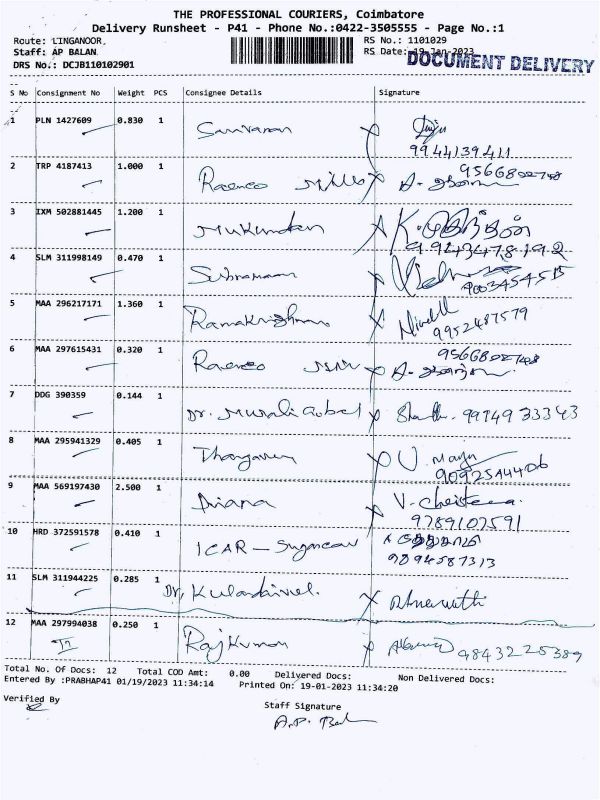 THE PROFESSIONAL COURIERS, Coimbatore
Delivery Runsheet - P41 - Phone No.:0422-3505555 - Page No.:1
Route: LINGANOOR, RS No.: 1101029
Staff: AP BALAN RS Date: 19-Jan-2023
DOCUMENT DELIVERY
DRS No.: DCJB110102901
S No Consignment No Weight PCS Consignee Details Signature
1 PLN 1427609 0.830 1
9944139411
2 TRP 4187413 1.000 1 Mills
3 IXM 502881445 1.200 1 Mukundan
9943478192
4 SLM 311998149 0.470 1
9003454515
5 MAA 296217171 1.360 1 Ramakrishnan
9952487579
6 MAA 297615431 0.320 1
7 DDG 390359 0.144 1 Dr. Murali 99749 33343
8 MAA 295941329 0.405 1
9092544406
9 MAA 569197430 2.500 1 Diana
9789107591
10 HRD 372591578 0.410 1 ICAR - Sugarcane
9894587313
11 SLM 311944225 0.285 1 Dr.
12 MAA 297994038 0.250 1 Rajkumar 9843225389
Total No. Of Docs: 12 Total COD Amt: 0.00 Delivered Docs: Non Delivered Docs:
Entered By :PRABHAP41 01/19/2023 11:34:14 Printed On: 19-01-2023 11:34:20
Verified By Staff Signature
A.P. Bal